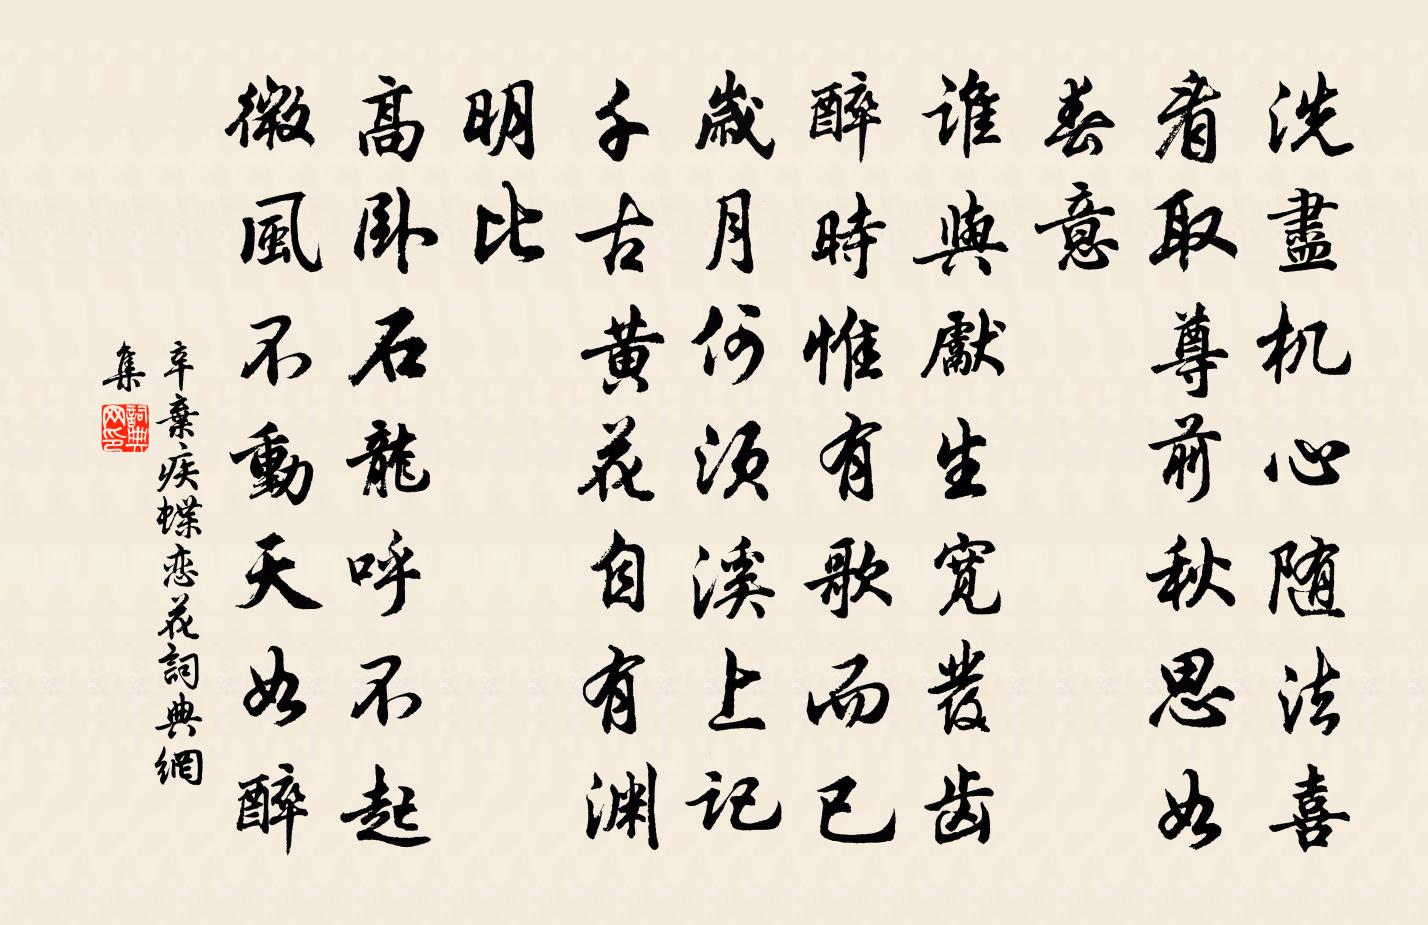 洗盡机心随法喜
看取尊前秋思如
春意
谁與獻生寬發齒
醉時惟有歌而已
歲月何須溪上記
千古黄花自有渊
明比
高卧石龍呼不起
微風不動天如醉
辛棄疾蝶恋花詞典網
集
詞典网印